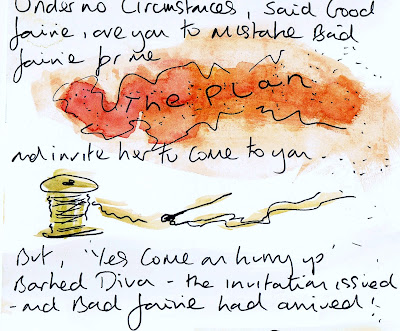 Under no Circumstances, said Good
fairie, are you to mistake Bad
fairie for me
The Plan
and invite her to come to you
But, 'Yes Come on hurry up'
Barked Diva - the invitation issued
- and Bad fairie had arrived!